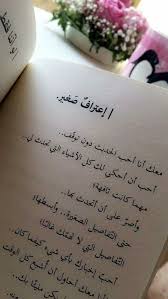 || إعترافٌ صَغير.
معك أنا أحب الحديث دون توقف..
أحب أن أحكي لك كل الأشياء التي تحدث لي..
مهما كانت تافهة!
وأُصرّ على أن أتحدث بها..
حتى التفاصيل الصغيرة.. وأسخفها!
التفاصيل التي لا تهمك غالبًا!
أحب إخبارك بأي شيء كيفما كان..
معك أنا أحاول أن أضيع كل الوقت